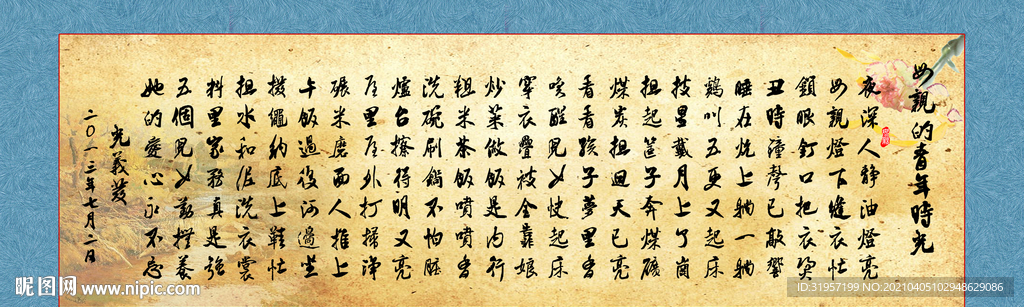 母親的青年時光
夜深人静油燈亮
母親燈下縫衣忙
鎖眼釘口把衣
丑時鐘聲已敲響
睡在炕上躺一躺
鷄叫五更又起床
披星戴月上了崗
担起筐子奔煤礦
煤炭担回天已亮
看看孩子夢里香
唤醒兒女快起床
穿衣疊被全靠娘
炒菜做飯是内行
粗米茶飯噴噴香
洗碗刷鍋不怕髒
爐台擦得明又亮
屋里屋外打掃净
碾米磨面人推上
午飯過後河邊坐
搓繩納底上鞋忙
担水和泥洗衣裳
料里家務真是強
五個兒女勤撫養
她的愛心永不忘
光義發
二〇一三年七月二日
昵图网 www.nipic.com
ID:31957199 NO:20210405102948629086